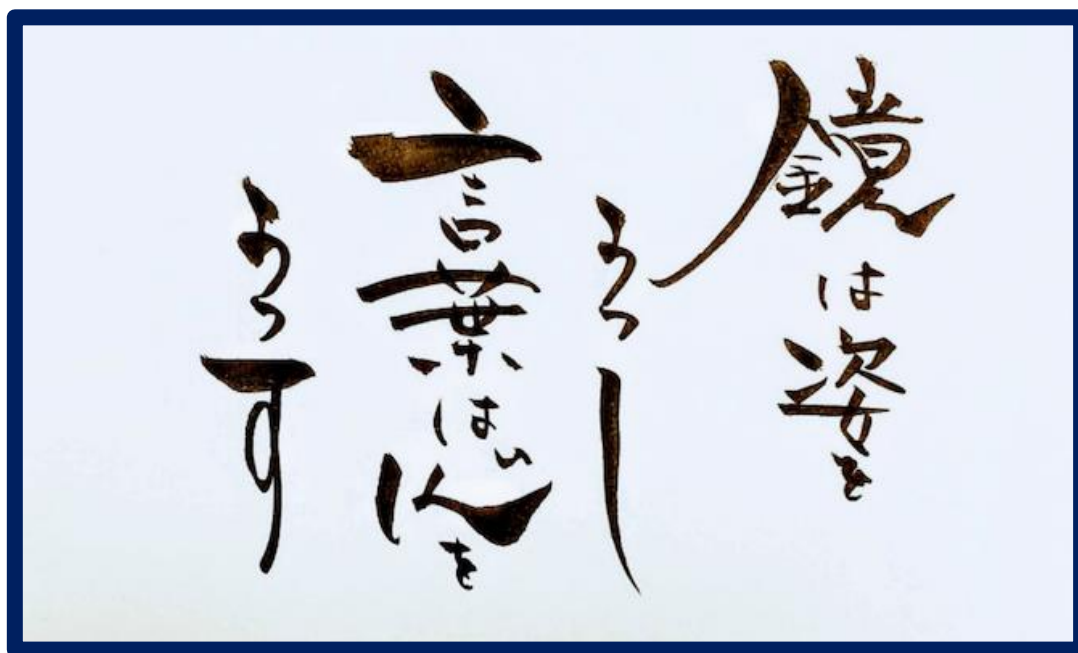 鏡は姿を
うつし
言葉は心を
うつす